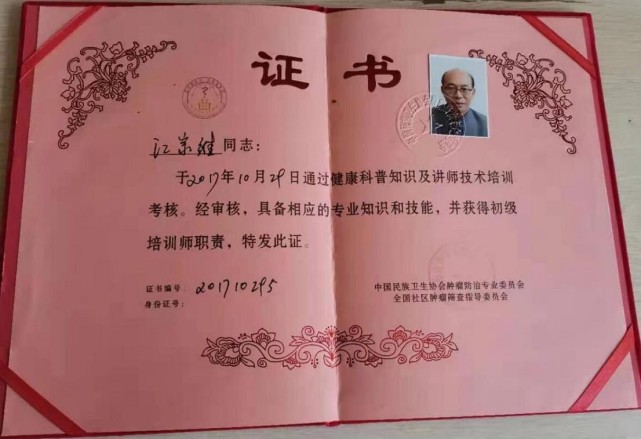 证书
江宗继同志：
于2017年10月29日通过健康科普知识及讲师技术培训
考核。经审核，具备相应的专业知识和技能，并获得初级
培训师职责，特发此证。
证书编号： 201710295
身份证号：
中国民族卫生协会肿瘤防治专业委员会
全国社区肿瘤筛查指导委员会